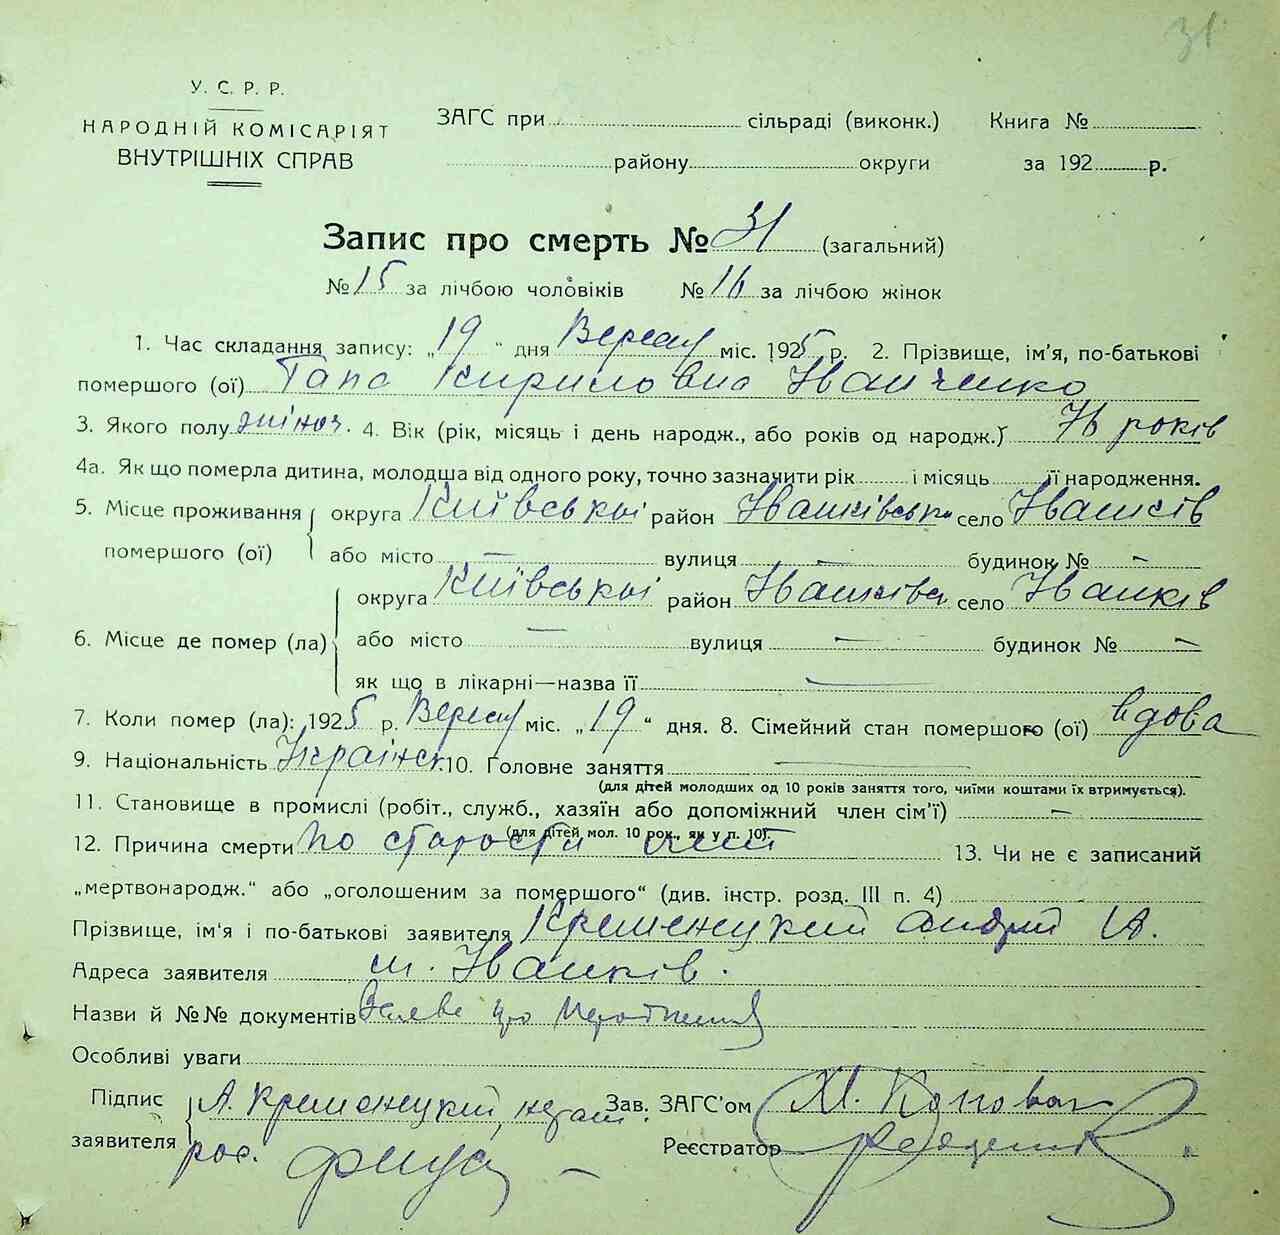 31
У. С. Р. Р.
НАРОДНІЙ КОМІСАРІЯТ
ВНУТРІШНІХ СПРАВ
ЗАГС при сільраді (виконк.)
району округи
Книга №
за 192 р.
Запис про смерть № 31 (загальний)
№ 15 за лічбою чоловіків № 16 за лічбою жінок
1. Час складання запису: „19“ дня Вересня міс. 1925 р. 2. Прізвище, ім'я, по-батькові
помершого (ої) Кириловна Іванченко
3. Якого полу жіноч. 4. Вік (рік, місяць і день народж., або років од народж.) 76 років
4а. Як що померла дитина, молодша від одного року, точно зазначити рік і місяць її народження.
5. Місце проживання округа Київської район Іванківськ село Іванків
помершого (ої) або місто — вулиця — будинок № —
округа Київської район Іванківськ село Іванків
6. Місце де помер (ла) або місто — вулиця — будинок № —
як що в лікарні—назва її —
7. Коли помер (ла): 1925 р. Вересня міс. „19“ дня. 8. Сімейний стан помершого (ої) вдова
9. Національність Українск. 10. Головне заняття —
(для дітей молодших од 10 років заняття того, чиїми коштами їх втримується).
11. Становище в промислі (робіт., служб., хазяїн або допоміжний член сім'ї) —
(для дітей мол. 10 рок., як у п. 10).
12. Причина смерти по старости літ 13. Чи не є записаний
„мертвонародж.“ або „оголошеним за помершого“ (див. інстр. розд. III п. 4)
Прізвище, ім'я і по-батькові заявителя Кременецкий Андрій А.
Адреса заявителя м. Іванків.
Назви й №№ документів про
Особливі уваги
Підпис А. Кременецкий, Зав. ЗАГС'ом
заявителя рос. Реєстратор